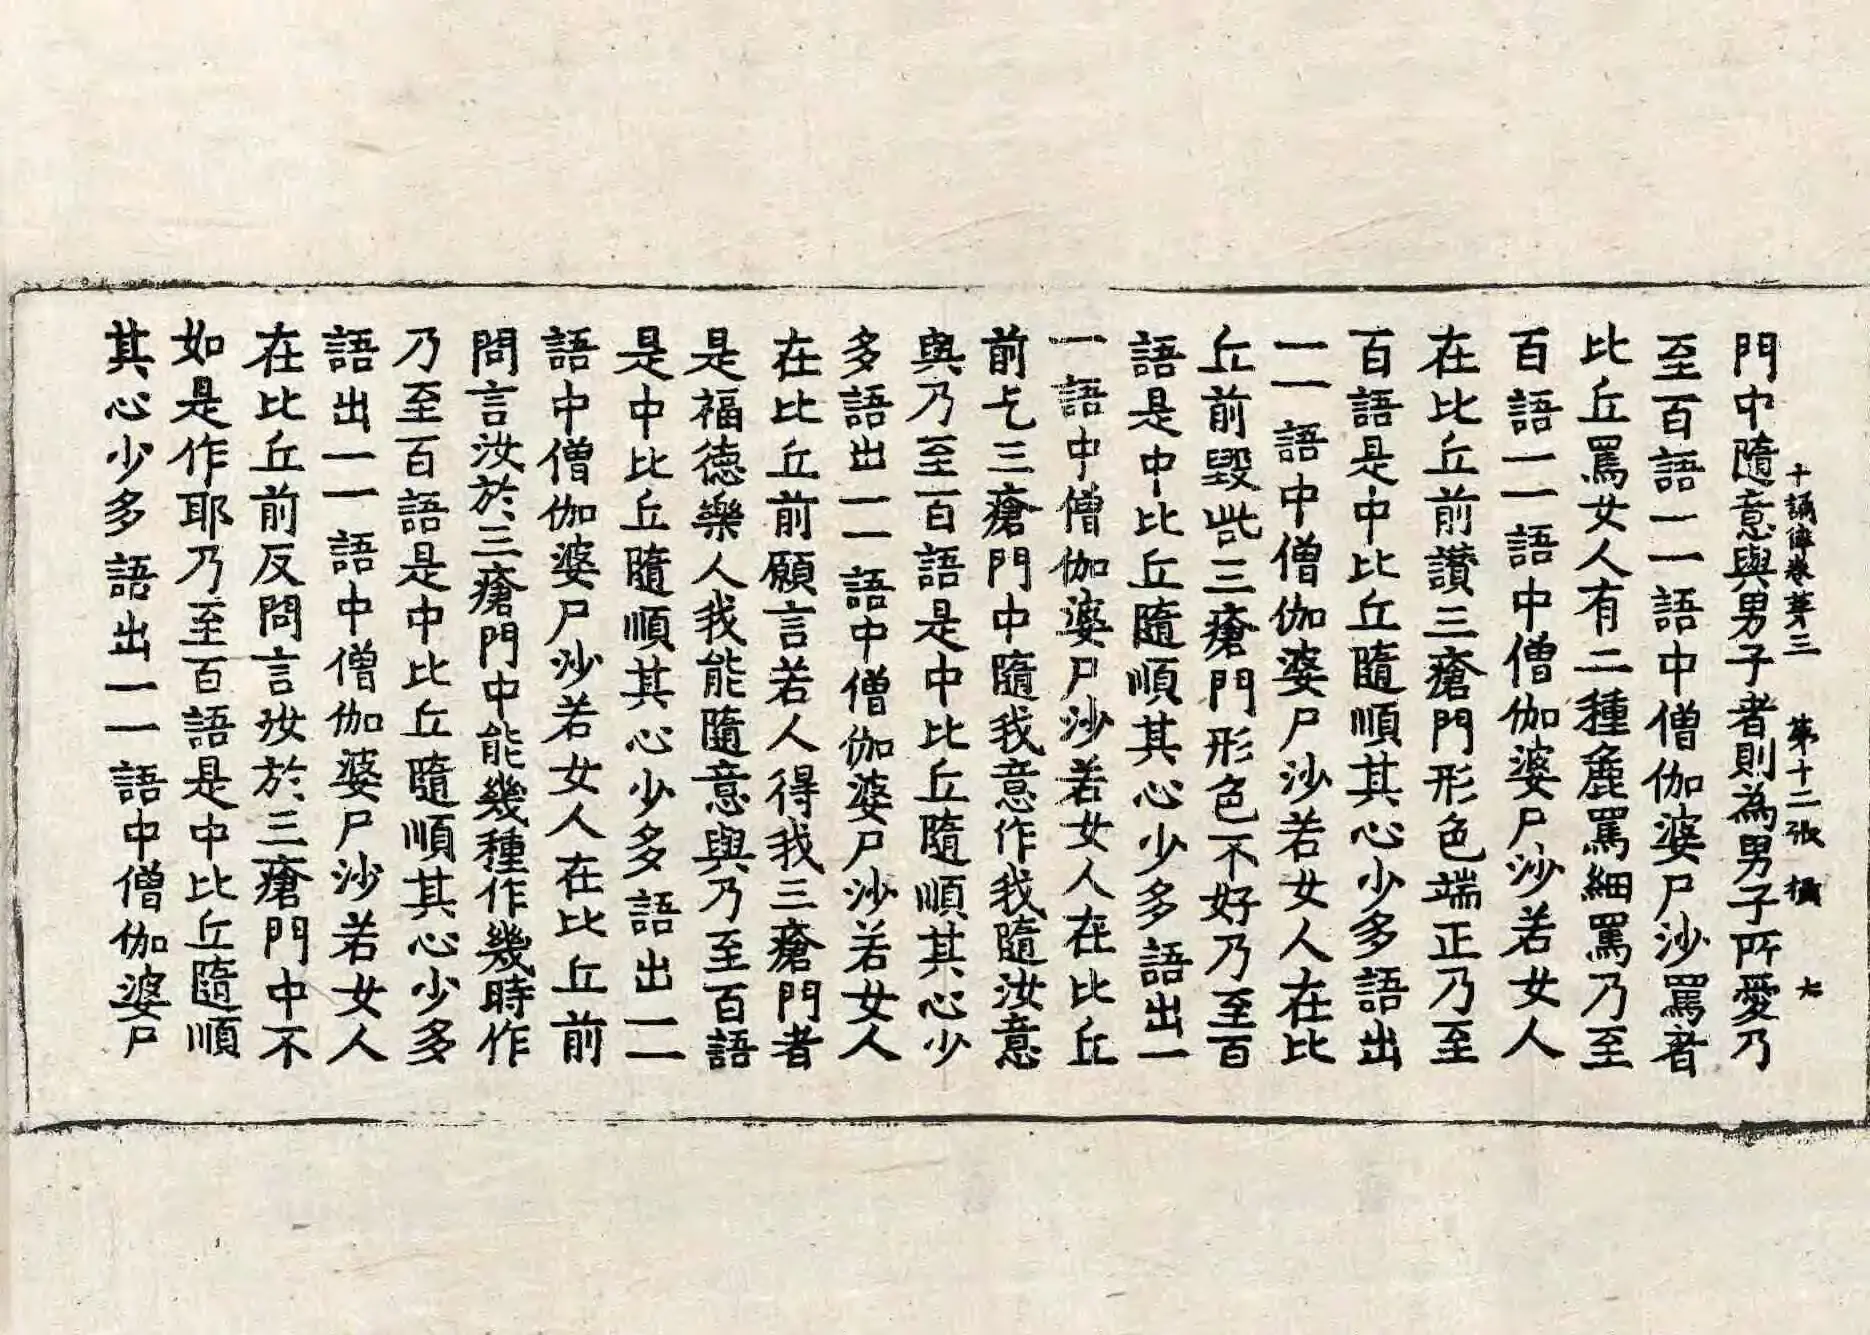 門中隨意與男子者則為男子所愛乃
十誦律卷第三 第十二張 攝
至百語一一語中僧伽婆尸沙罵者
比丘罵女人有二種麁罵細罵乃至
百語一一語中僧伽婆尸沙若女人
在比丘前讚三瘡門形色端正乃至
百語是中比丘隨順其心少多語出
一一語中僧伽婆尸沙若女人在比
丘前毀呰三瘡門形色不好乃至百
語是中比丘隨順其心少多語出一
一語中僧伽婆尸沙若女人在比丘
前乞三瘡門中隨我意作我隨汝意
與乃至百語是中比丘隨順其心少
多語出一一語中僧伽婆尸沙若女人
在比丘前願言若人得我三瘡門者
是福德樂人我能隨意與乃至百語
是中比丘隨順其心少多語出一一
語中僧伽婆尸沙若女人在比丘前
問言汝於三瘡門中能幾種作幾時作
乃至百語是中比丘隨順其心少多
語出一一語中僧伽婆尸沙若女人
在比丘前反問言汝於三瘡門中不
如是作耶乃至百語是中比丘隨順
其心少多語出一一語中僧伽婆尸